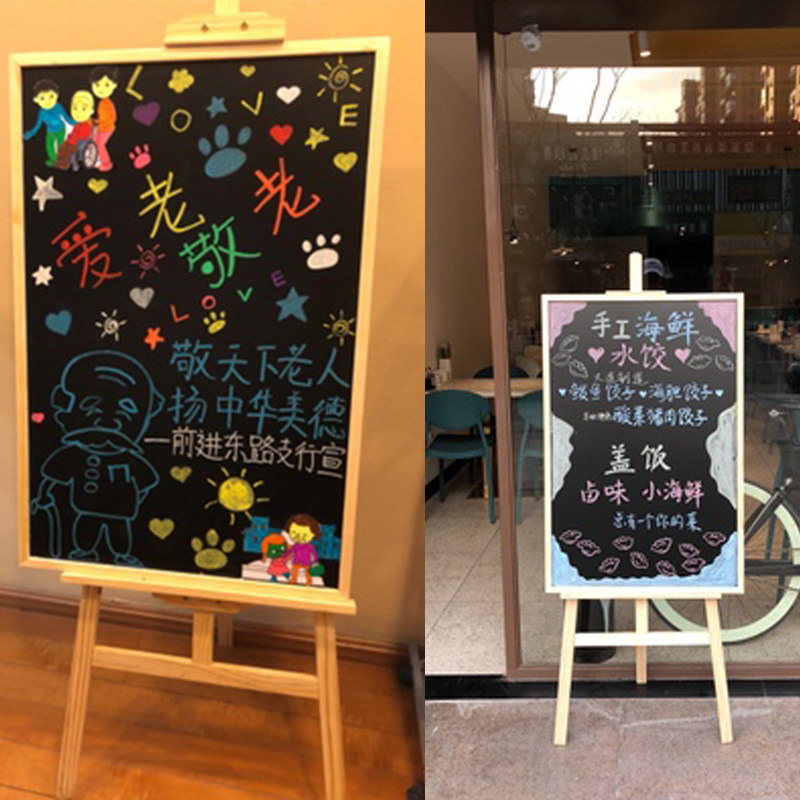 LOVE
爱老敬老
LOVE
敬天下老人
扬中华美德
一前进东路支行宣
手工海鲜
水饺
鲅鱼饺子 海胆饺子
酸菜猪肉饺子
盖饭
卤味 小海鲜
总有一个你的菜